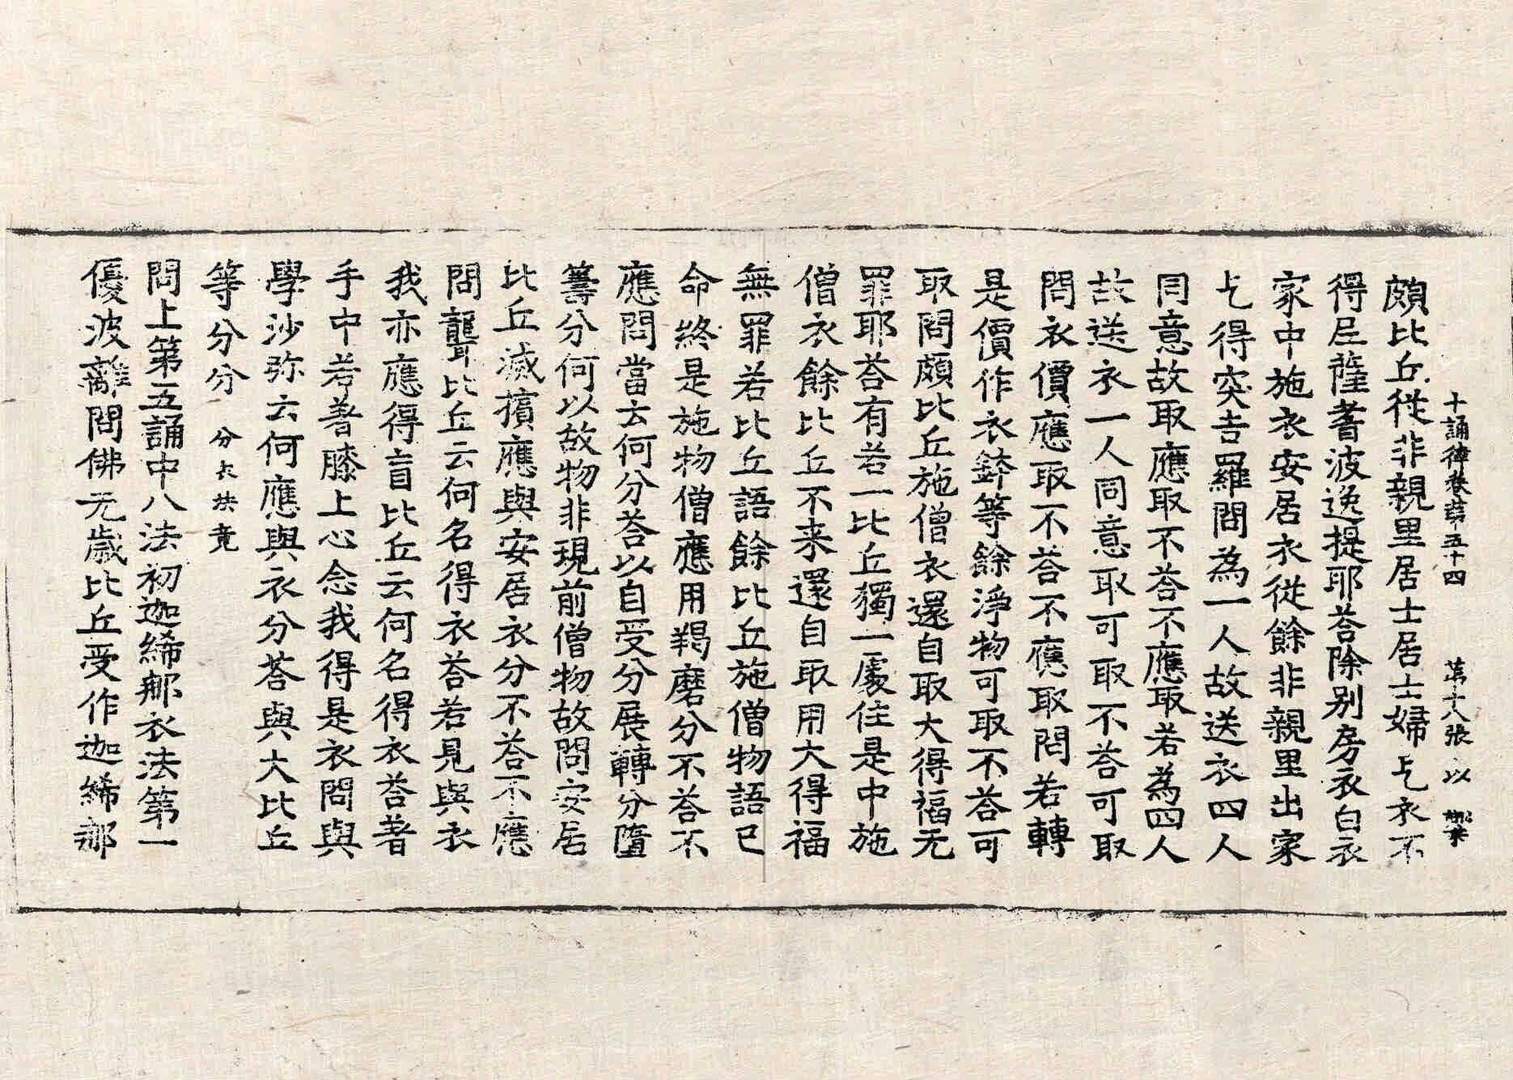 十誦律卷第五十四 第十八張 以
頗比丘從非親里居士居士婦乞衣不
得尼薩耆波逸提耶荅除別房衣白衣
家中施衣安居衣從餘非親里出家
乞得突吉羅問為一人故送衣四人
同意故取應取不荅不應取若為四人
故送衣一人同意取可取不荅可取
問衣價應取不荅不應取問若轉
是價作衣鉢等餘淨物可取不荅可
取問頗比丘施僧衣還自取大得福无
罪耶荅有若一比丘獨一處住是中施
僧衣餘比丘不来還自取用大得福
無罪若比丘語餘比丘施僧物語已
命終是施物僧應用羯磨分不荅不
應問當云何分荅以自受分展轉分墮
籌分何以故物非現前僧物故問安居
比丘滅擯應與安居衣分不荅不應
問聾比丘云何名得衣荅若見與衣
我亦應得盲比丘云何名得衣荅著
手中若著膝上心念我得是衣問與
學沙弥云何應與衣分荅與大比丘
等分分 分衣法竟
問上第五誦中八法初迦絺那衣法第一
優波離問佛无歲比丘受作迦絺那